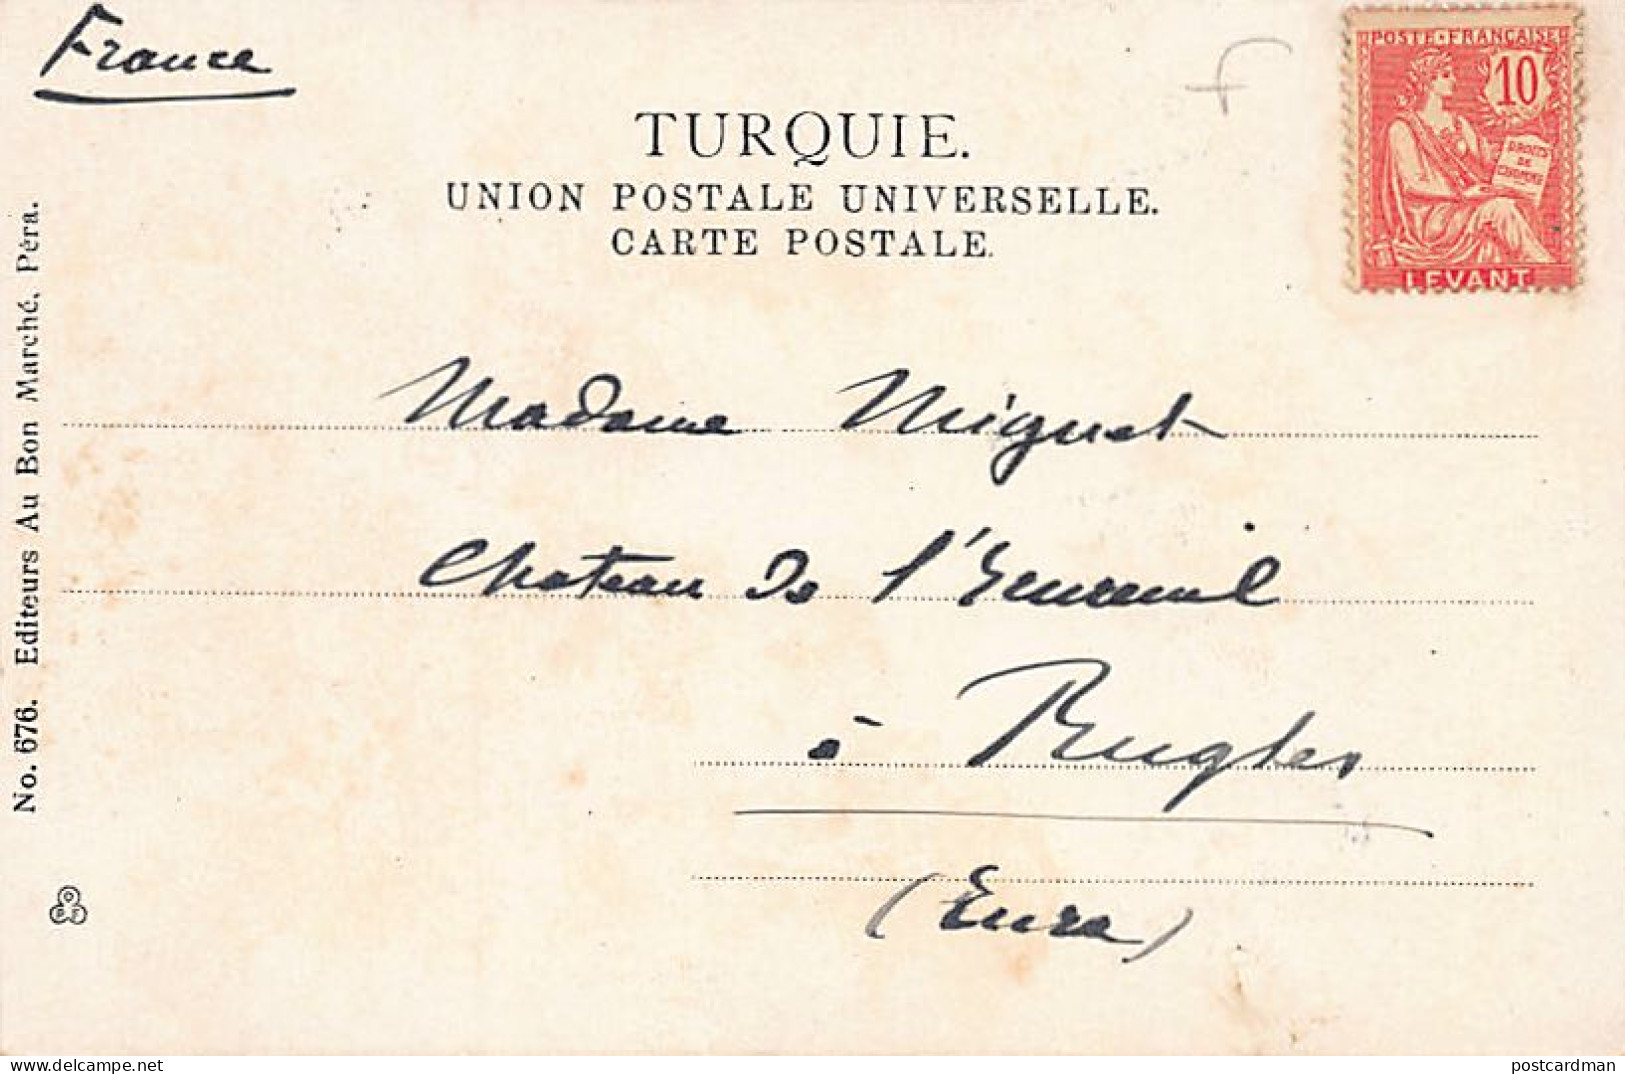 France
POSTE FRANÇAISE
10
DROITS
DE
L'HOMME
LEVANT
TURQUIE.
UNION POSTALE UNIVERSELLE.
CARTE POSTALE.
Madame Miguet
Chateau de
à Rugles
(Eure)
No. 676. Editeurs Au Bon Marché, Péra.
delcampe.net
postcardman